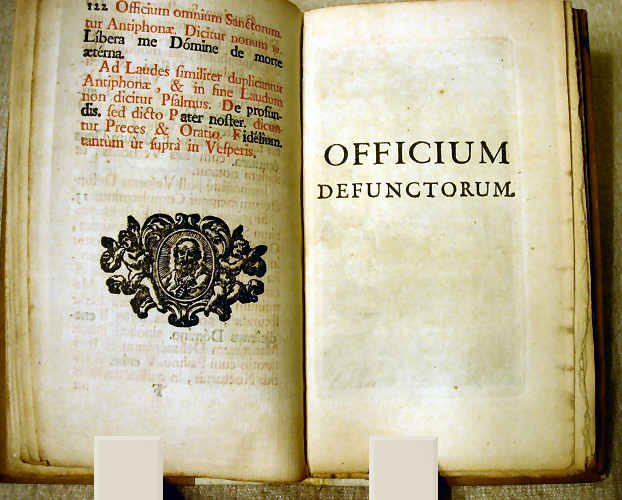 122 Officium omnium Sanctorum.
tur Antiphonæ. Dicitur nonum ꝶ.
Líbera me Dómine de morte
ætérna.
Ad Laudes ſimiliter duplicantur
Antiphonæ, & in fine Laudum
non dicitur Pſalmus. De profun-
dis. ſed dicto Pater noſter. dicun-
tur Preces & Oratio. Fidélium.
tantum ut ſuprà in Veſperis.
OFFICIUM
DEFUNCTORUM.